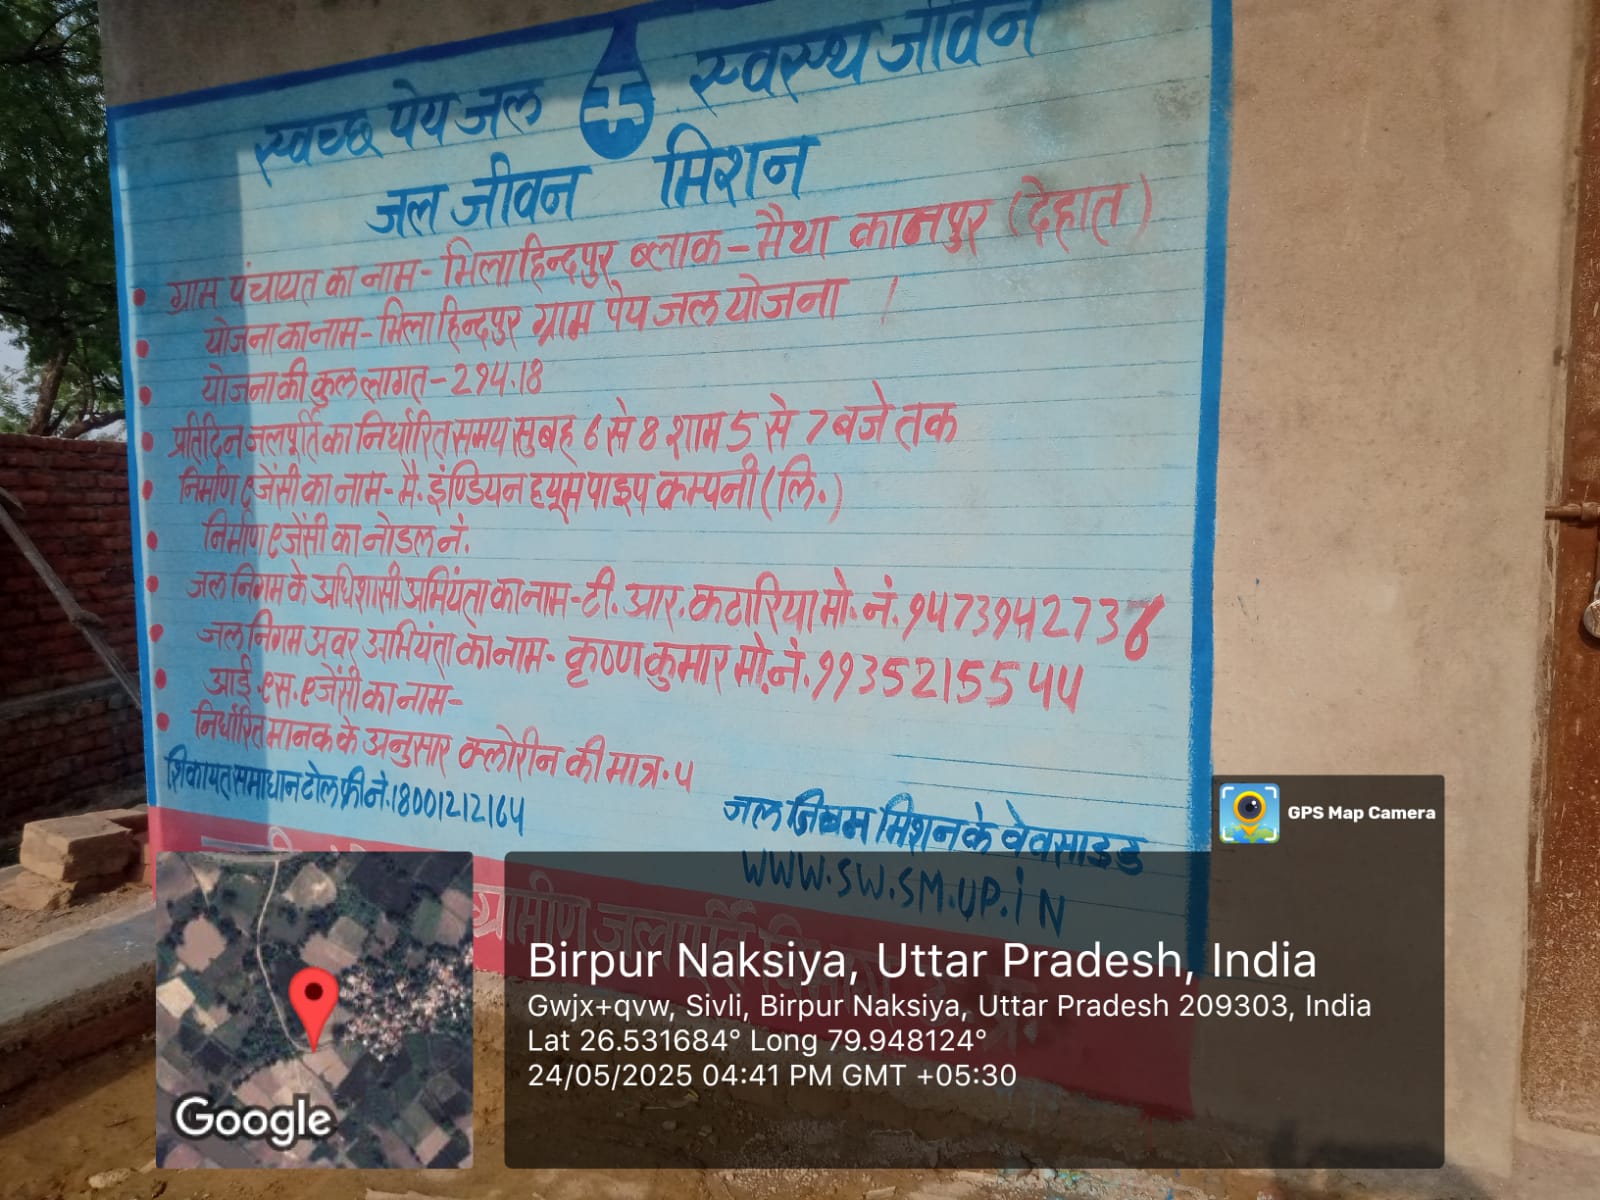 स्वच्छ पेय जल स्वस्थ जीवन
जल जीवन मिशन
ग्राम पंचायत का नाम - भिला हिन्दपुर ब्लाक - मैथा कानपुर (देहात)
योजना का नाम - भिला हिन्दपुर ग्राम पेय जल योजना
योजना की कुल लागत - 294.18
प्रतिदिन जलपूर्ति का निर्धारित समय सुबह 6 से 8 शाम 5 से 7 बजे तक
निर्माण एजेंसी का नाम - मै. इंण्डियन हयूम पाइप कम्पनी (लि.)
निर्माण एजेंसी का नोडल नं.
जल निगम के अधिशासी अभियंता का नाम - टी. आर. कटारिया मो. नं. 9473942738
जल निगम अवर अभियंता का नाम - कृष्ण कुमार मो. नं. 9935215544
आई. एस. एजेंसी का नाम -
निर्धारित मानक के अनुसार क्लोरीन की मात्र. 5
शिकायत समाधान टोल फ्री नं. 18001212164
जल मिशन के वेवसाइड
WWW.SW.SM.UP.iN
ग्रामीण जलापूर्ति
GPS Map Camera
Birpur Naksiya, Uttar Pradesh, India
Gwjx+qvw, Sivli, Birpur Naksiya, Uttar Pradesh 209303, India
Lat 26.531684° Long 79.948124°
24/05/2025 04:41 PM GMT +05:30
Google